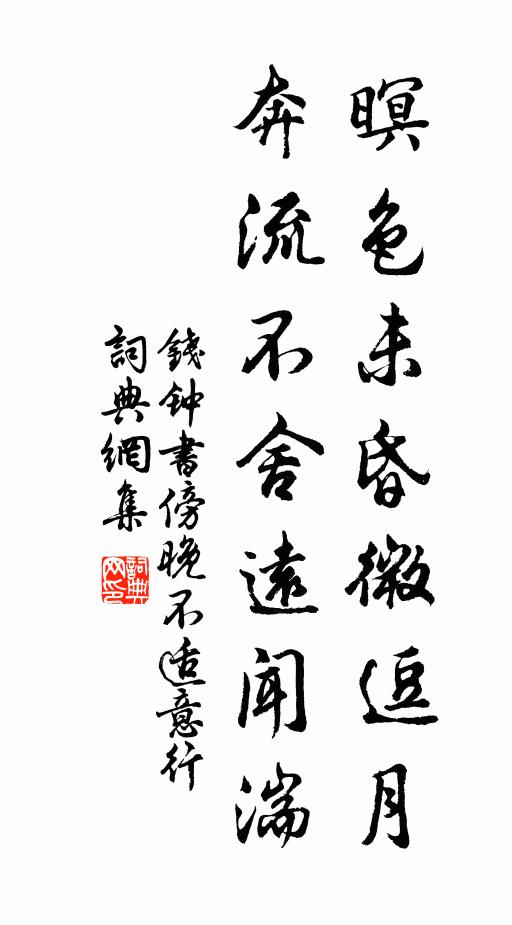 暝色未昏微逗月
奔流不舍遠聞湍
錢钟書傍晚不适意行
詞典網集
詞典网印